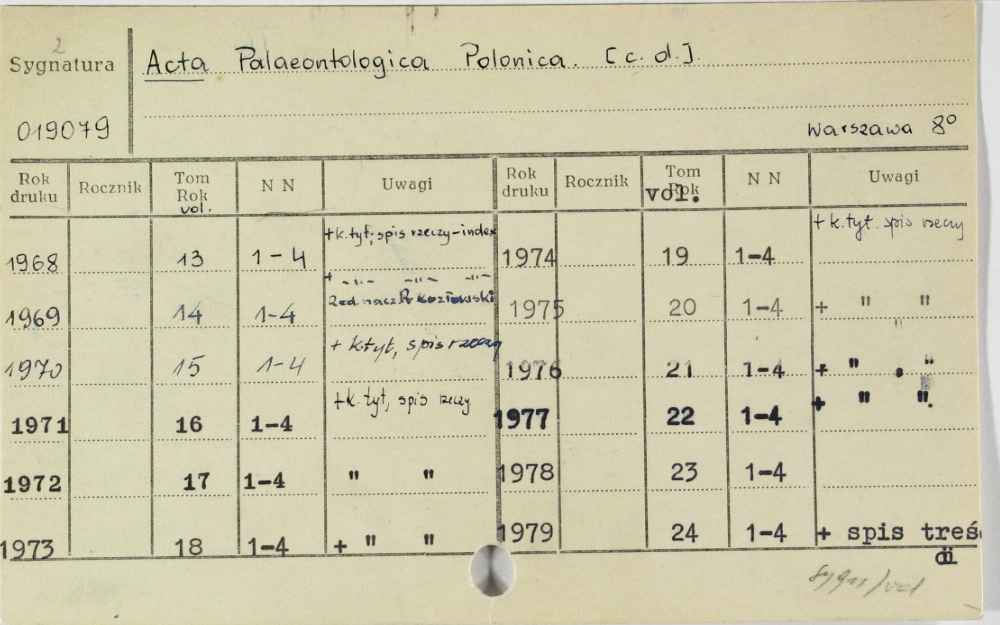 2
Sygnatura
Acta Palaeontologica Polonica. [c. d.]
019079
Warszawa 8°
Rok druku Rocznik Tom Rok vol. N N Uwagi Rok druku Rocznik Tom Rok vol. N N Uwagi
1968 13 1-4 +k. tyt, spis rzeczy-index 1974 19 1-4 + k. tyt. spis rzeczy
1969 14 1-4 + -"- -"- -"- Kozłowski 1975 20 1-4 + " "
1970 15 1-4 + k tyt, spis rzeczy 1976 21 1-4 + " "
1971 16 1-4 +k. tyt, spis rzeczy 1977 22 1-4 + " ".
1972 17 1-4 " " 1978 23 1-4
1973 18 1-4 + " " 1979 24 1-4 + spis treś
ci